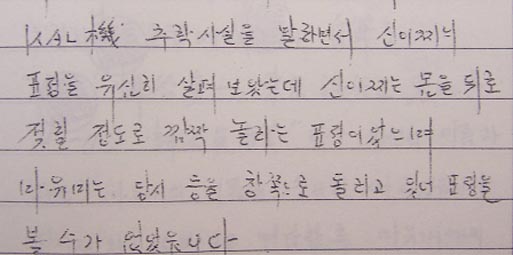 KAL機 추락사실을 말하면서 신이찌의
표정을 유심히 살펴 보았는데 신이찌는 몸을 뒤로
젖힐 정도로 깜짝 놀라는 표정이었으며
마유미는 당시 등을 창쪽으로 돌리고 있어 표정을
볼 수가 없었읍니다